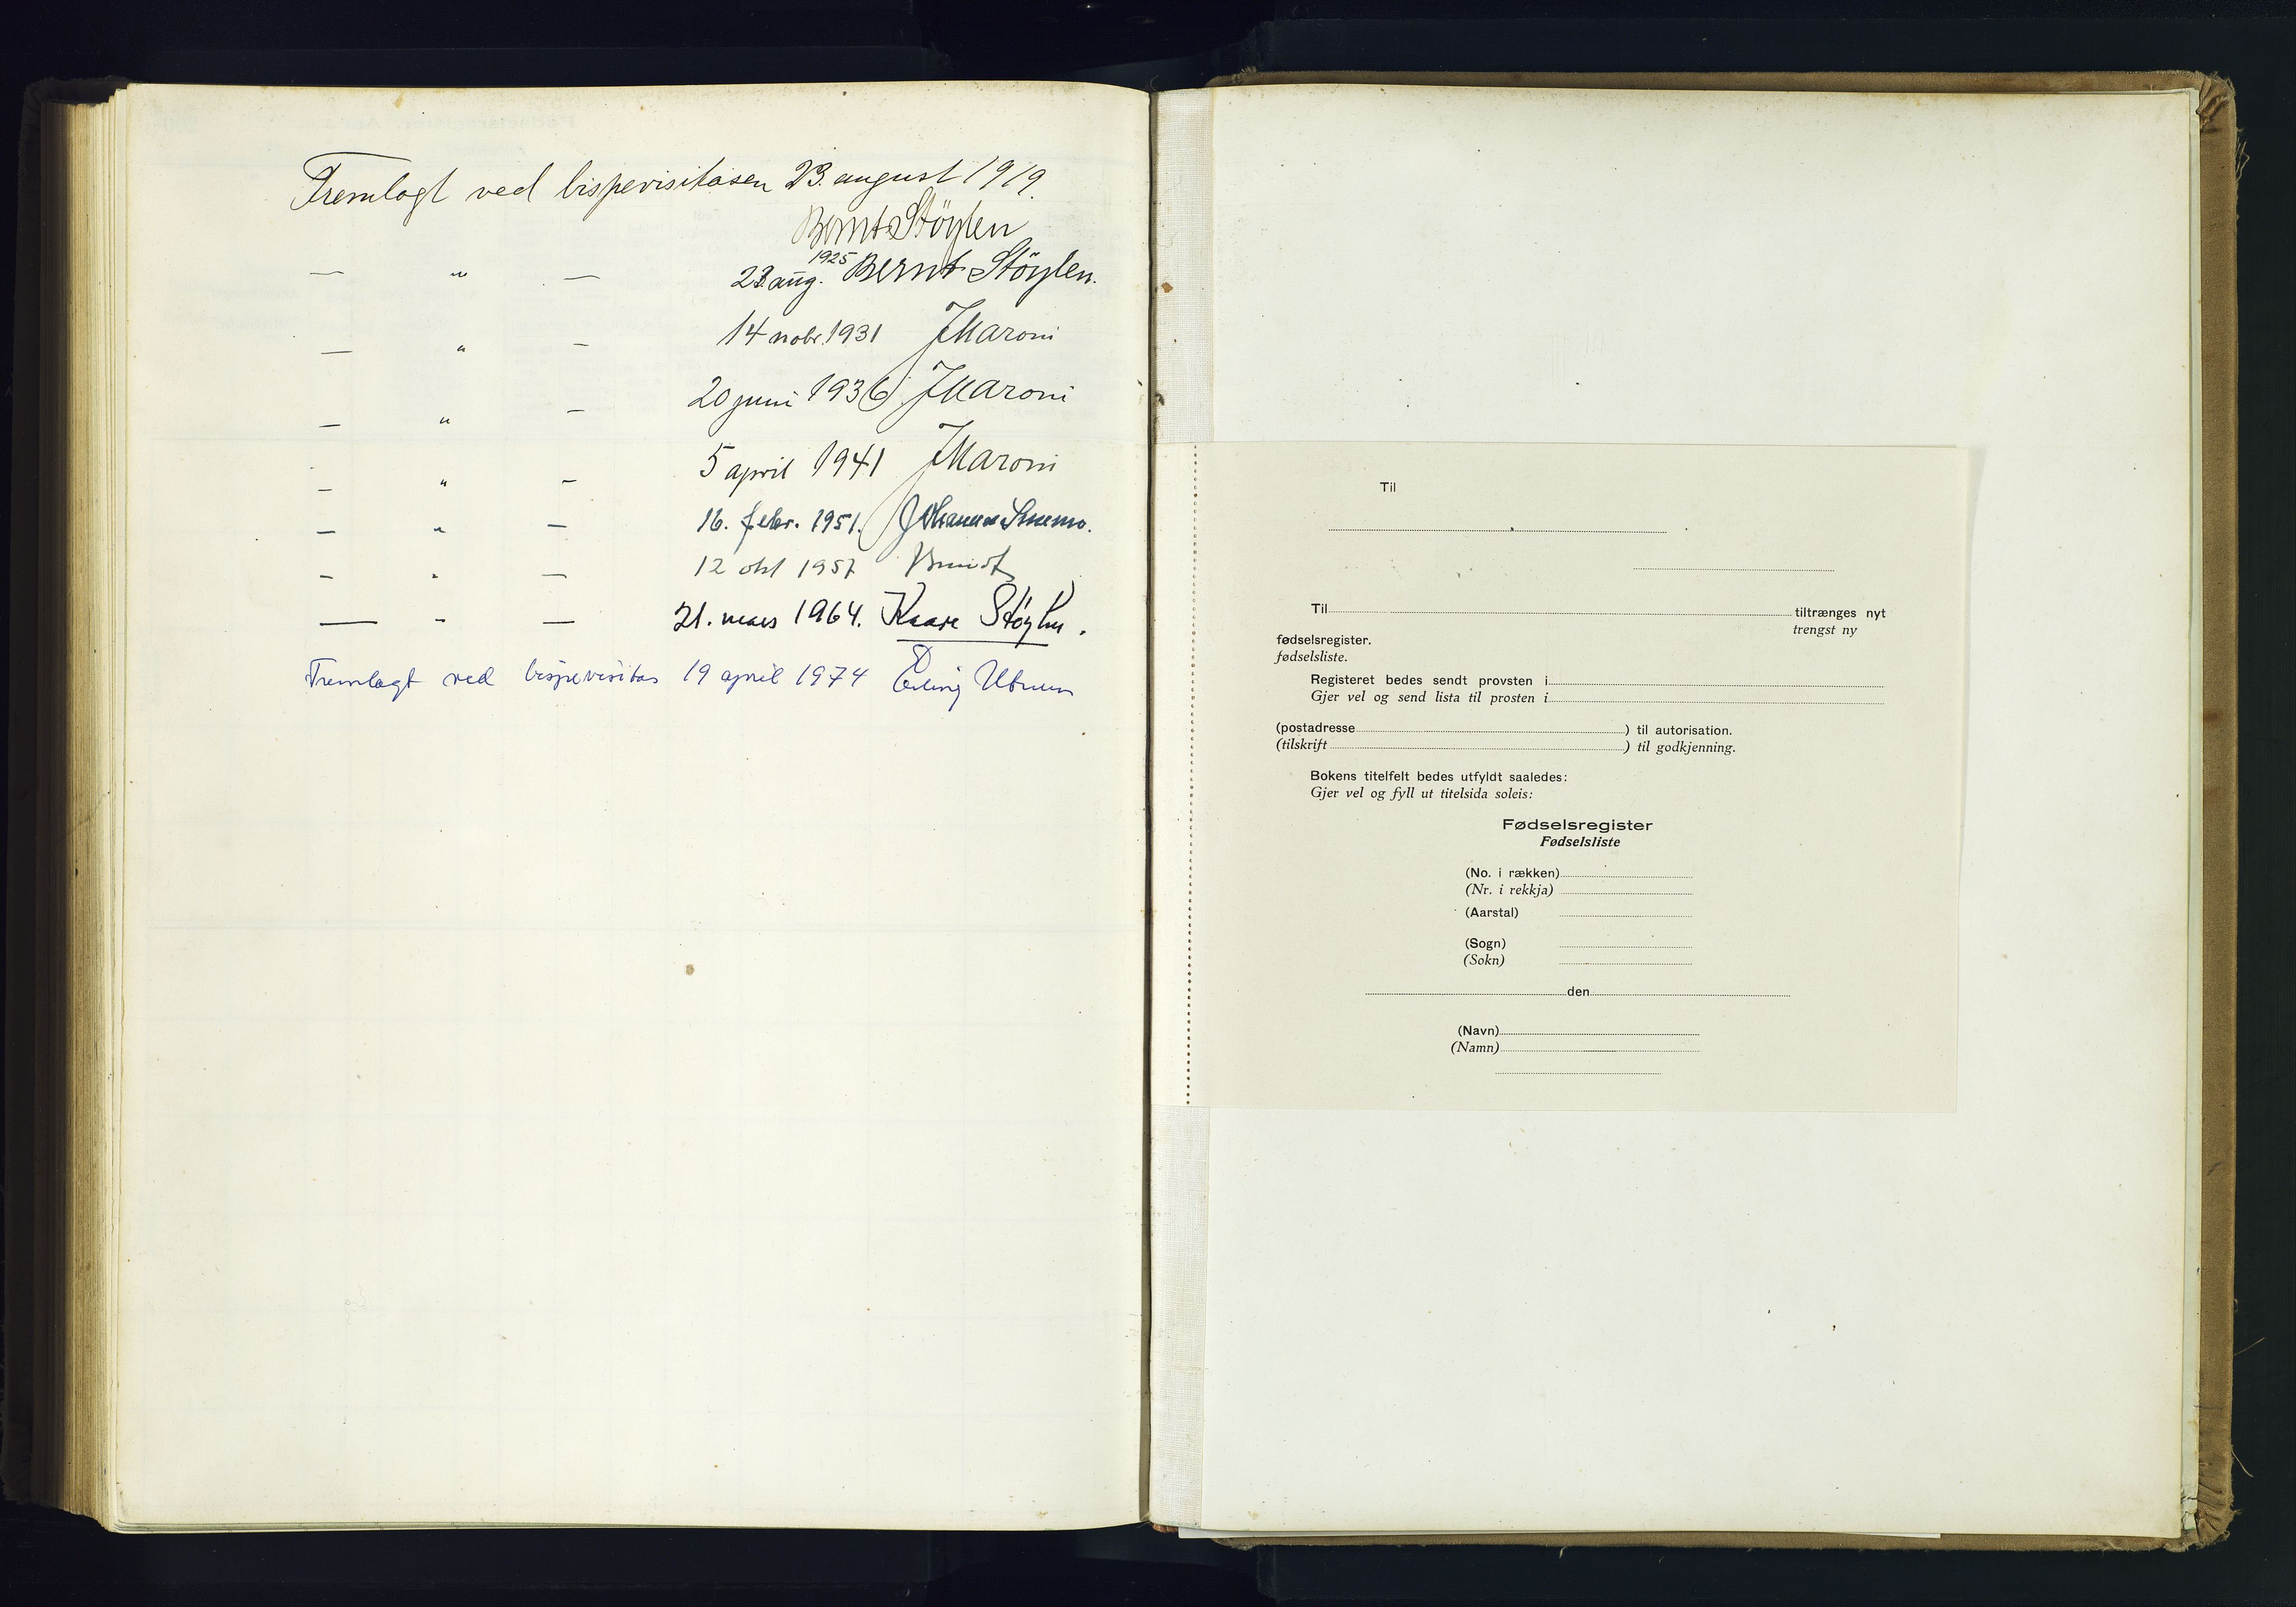 Fremlagt ved bispevisitasen 23. august 1919.
Bernt Støylen
— " — 23 aug. 1925 Bernt Støylen.
— " — 14 nobr. 1931 JMaroni
— " — 20 juni 1936. JMaroni
— " — 5 april 1941 JMaroni
— " — 16. febr. 1951. Johannes Smemo.
— " — 12 okt 1957
— " — 21. mars 1964. Kaare Støylen.
Fremlagt ved bispevisitas 19 april 1974 Erling Utnem
Til
Til tiltrænges nyt
trengst ny
fødselsregister.
fødselsliste.
Registeret bedes sendt provsten i
Gjer vel og send lista til prosten i
(postadresse ) til autorisation.
(tilskrift ) til godkjenning.
Bokens titelfelt bedes utfyldt saaledes:
Gjer vel og fyll ut titelsida soleis:
Fødselsregister
Fødselsliste
(No. i rækken)
(Nr. i rekkja)
(Aarstal)
(Sogn)
(Sokn)
den
(Navn)
(Namn)